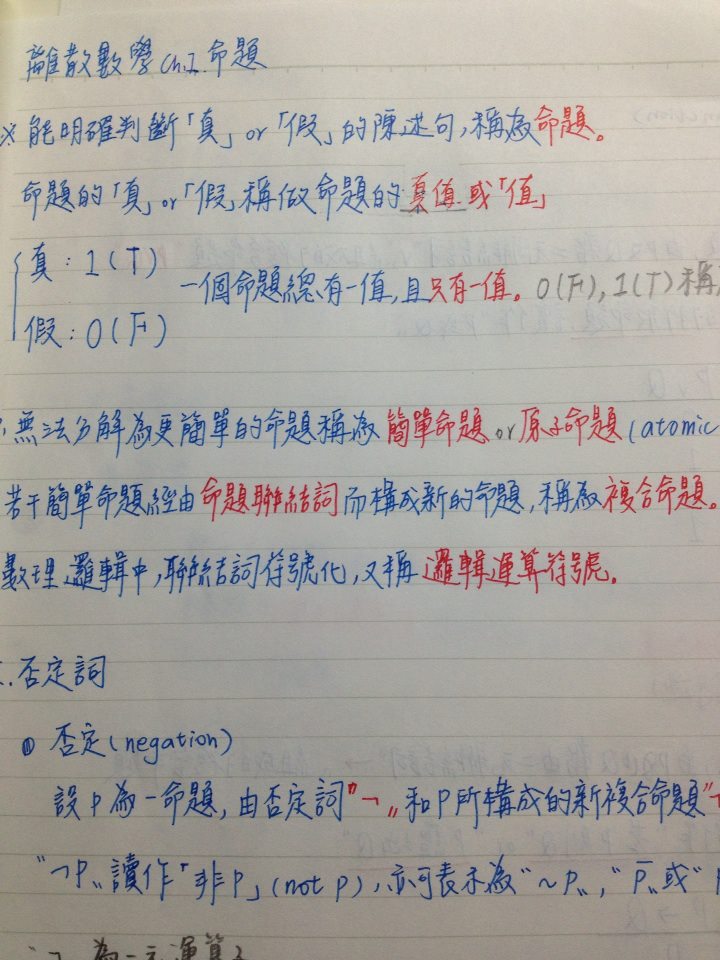 離散數學 ch1. 命題
※ 能明確判斷「真」or「假」的陳述句,稱為命題。
命題的「真」or「假」稱做命題的真值或「值」
真:1(T)
一個命題總有一值,且只有一值。0(F),1(T)稱
假:0(F)
無法分解為更簡單的命題稱為簡單命題 or 原子命題(atomic
若干簡單命題經由命題聯結詞而構成新的命題,稱為複合命題。
數理邏輯中,聯結詞符號化,又稱邏輯運算符號。
否定詞
① 否定(negation)
設P為一命題,由否定詞"¬"和P所構成的新複合命題"¬
"¬P"讀作「非P」(not P),亦可表示為"~P","P̅"或"
"¬ 為一元運算子